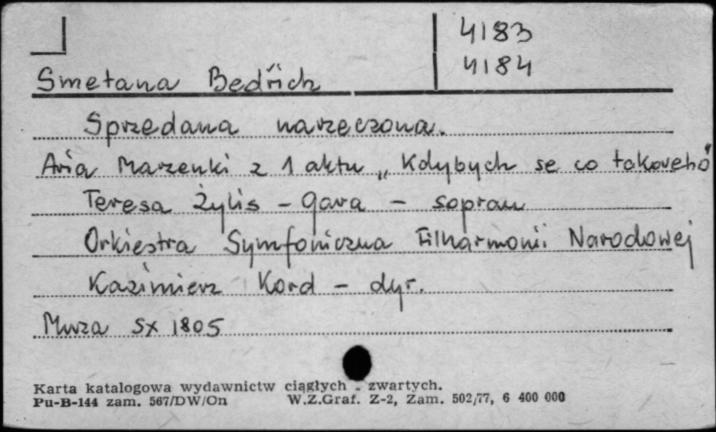 4183
4184
Smetana Bedřich
Sprzedana narzeczona.
Aria Marzenki z 1 aktu „Kdybych se co takoveho"
Teresa Żylis - Gara - sopran
Orkiestra Symfoniczna Filharmonii Narodowej
Kazimierz Kord - dyr.
Muza SX 1805
Karta katalogowa wydawnictw ciągłych - zwartych.
Pu-B-144 zam. 567/DW/On W.Z.Graf. Z-2, Zam. 502/77, 6 400 000